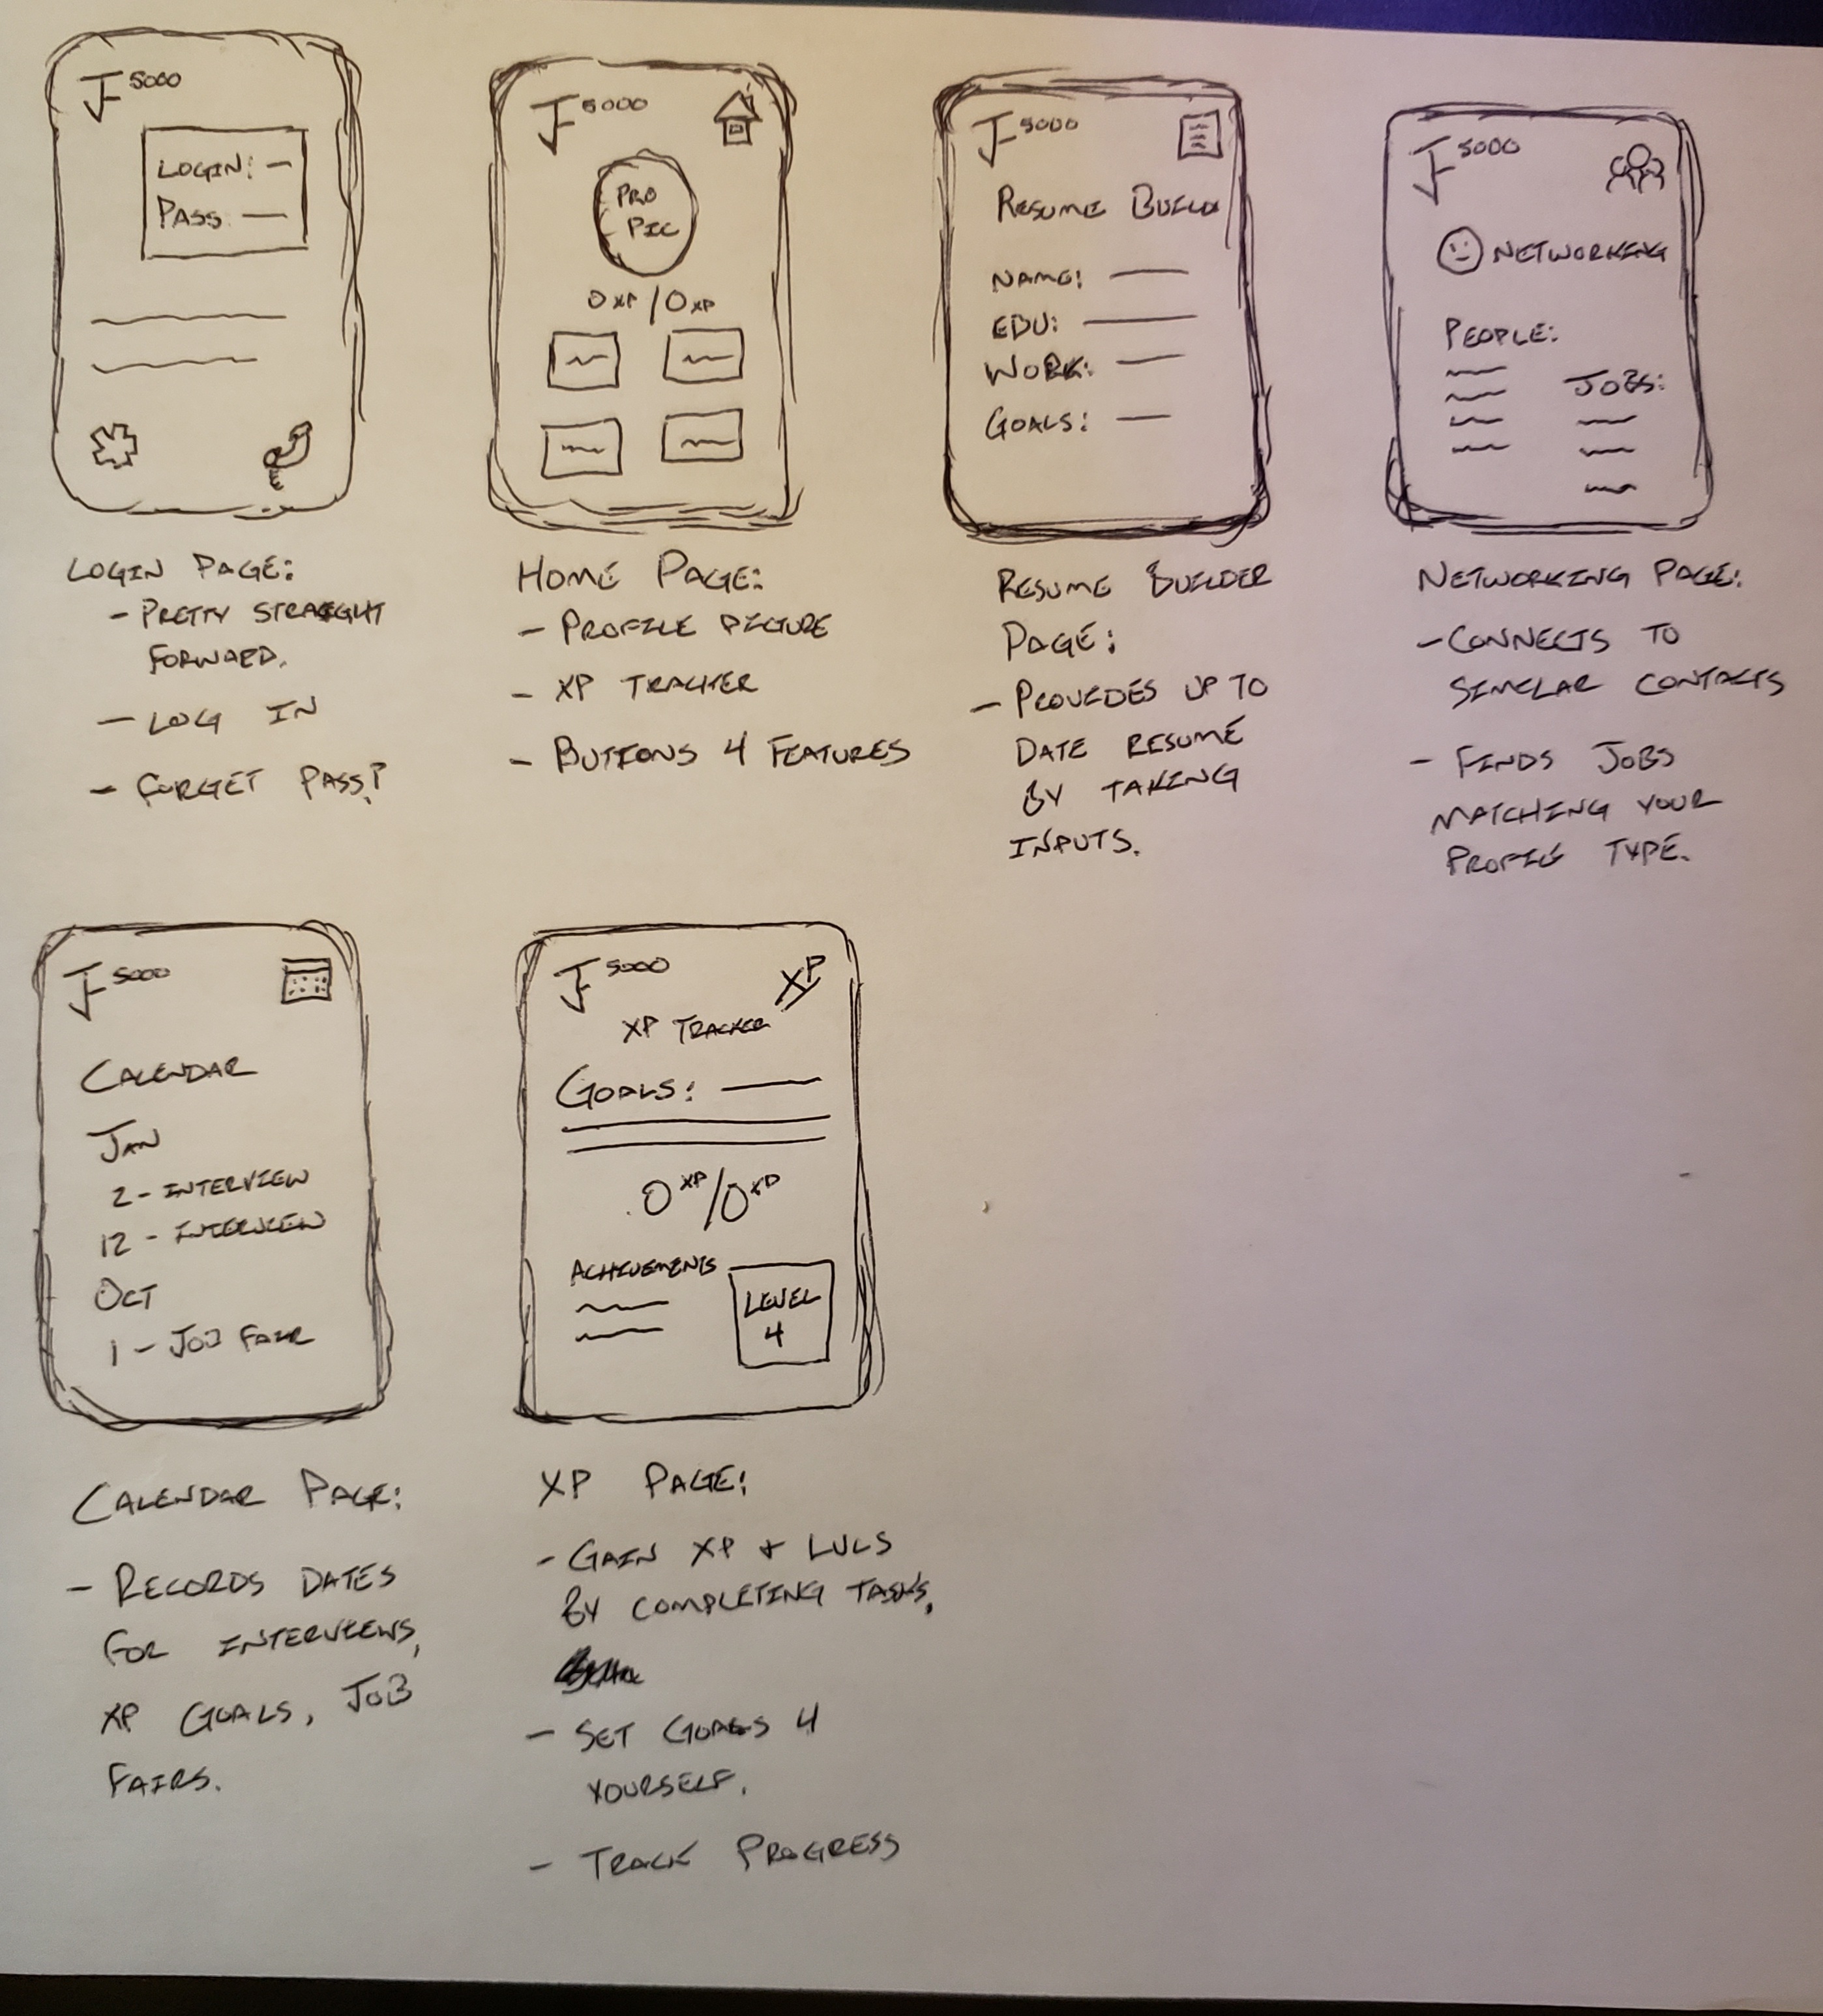 JF 5000
LOGIN: —
PASS —
LOGIN PAGE:
- PRETTY STRAIGHT
FORWARD.
- LOG IN
- FORGET PASS?
JF 5000
PRO
PIC
0 XP / 0 XP
HOME PAGE:
- PROFILE PICTURE
- XP TRACKER
- BUTTONS 4 FEATURES
JF 5000
RESUME BUILD
NAME:
EDU:
WORK:
GOALS:
RESUME BUILDER
PAGE:
- PROVIDES UP TO
DATE RESUME
BY TAKING
INPUTS.
JF 5000
NETWORKING
PEOPLE:
JOBS:
NETWORKING PAGE:
- CONNECTS TO
SIMILAR CONTACTS
- FINDS JOBS
MATCHING YOUR
PROFILE TYPE.
JF 5000
CALENDAR
JAN
2 - INTERVIEW
12 - INTERVIEW
OCT
1 - JOB FAIR
CALENDAR PAGE:
- RECORDS DATES
FOR INTERVIEWS,
XP GOALS, JOB
FAIRS.
JF 5000
XP
XP TRACKER
GOALS:
0 XP / 0 XP
ACHIEVEMENTS
LEVEL
4
XP PAGE:
- GAIN XP + LVLS
BY COMPLETING TASKS,
- SET GOALS 4
YOURSELF.
- TRACK PROGRESS